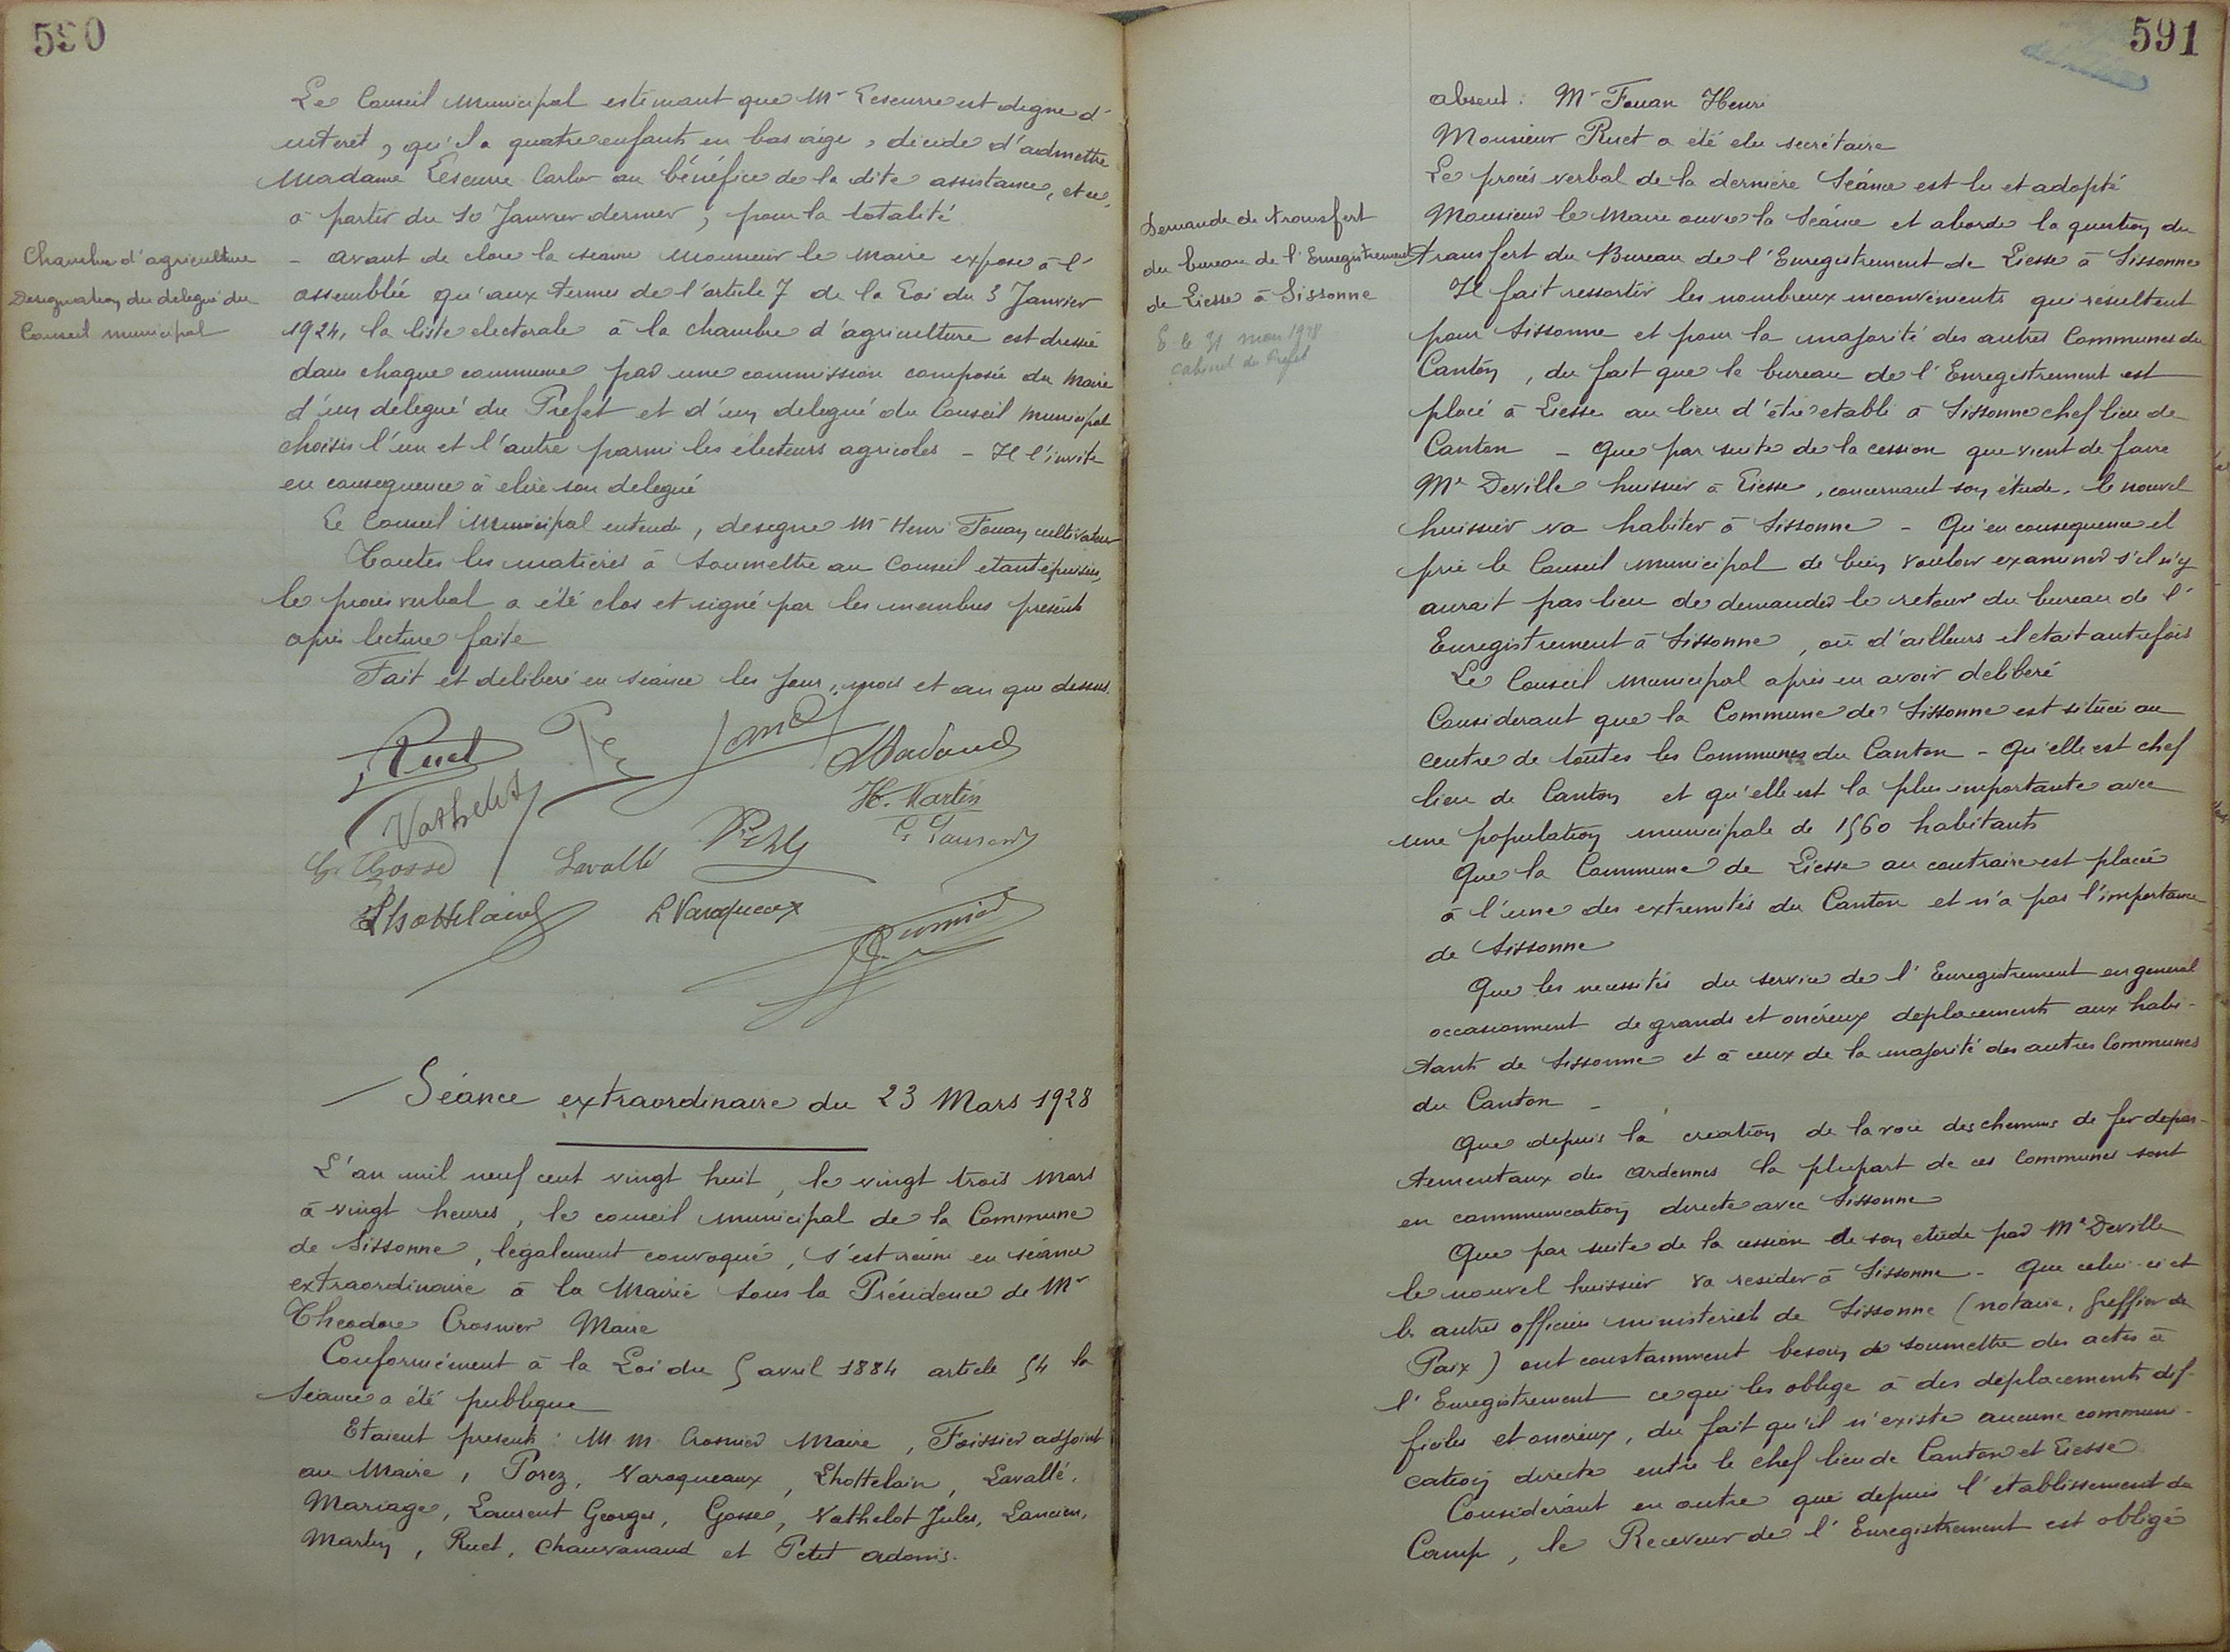 590
Le Conseil Municipal estimant que Mr Leseurre est digne d'
interêt, qu'il a quatre enfants en bas aige, décide d'admettre
Madame Leseurre Carlier au bénéfice de la dite assistance, et ce,
à partir du 10 Janvier dernier, pour la totalité
Chambre d'agriculture
Designation du delegué du
Conseil municipal
- avant de clore la seance Monsieur le Maire expose à l'
assemblée qu'aux termes de l'article 7 de la Loi du 3 Janvier
1924, la liste electorale à la chambre d'agriculture est dressée
dans chaque commune par une commission composée du Maire
d'un delegué du Prefet et d'un delegué du Conseil Municipal
choisis l'un et l'autre parmi les électeurs agricoles - Il l'invite
en consequence à elire son delegué
Le Conseil Municipal entendu, designe Mr Henri Fouan cultivateur
Toutes les matières à soumettre au Conseil etant épuisées,
le procès verbal a été clos et signé par les membres présents
après lecture faite
Fait et deliberé en séance les jour, mois et an que dessus.
Ruet
Vathelot
H. Martin
G. Laurent
G. Gosse
Lavallé
Lhottelain
L Varoqueaux
Séance extraordinaire du 23 Mars 1928
L'an mil neuf cent vingt huit, le vingt trois Mars
à vingt heures, le conseil municipal de la Commune
de Sissonne, légalement convoqué, s'est réuni en séance
extraordinaire à la Mairie sous la Présidence de Mr
Theodore Crosnier Maire
Conformément à la Loi du 5 avril 1884 article 54 la
Séance a été publique
Etaient presents : M M Crosnier Maire, Foissier adjoint
au Maire, Porez, Varoqueaux, Lhottelain, Lavallé,
Mariage, Laurent Georges, Gosse, Vathelot Jules, Lancien,
Martin, Ruet, Chauvanaud et Petit Adonis.
591
absent : Mr Fouan Henri
Monsieur Ruet a été elu secrétaire
Le procès verbal de la dernière Séance est lu et adopté
Demande de transfert
du bureau de l'Enregistrement
de Liesse à Sissonne
E. le 31 mars 1928
Cabinet du Prefet
Monsieur le Maire ouvre la Séance et aborde la question du
transfert du Bureau de l'Enregistrement de Liesse à Sissonne
Il fait ressortir les nombreux inconvénients qui résultent
pour Sissonne et pour la majorité des autres Communes du
Canton, du fait que le bureau de l'Enregistrement est
placé à Liesse au lieu d'être etabli à Sissonne chef lieu de
Canton - Que par suite de la cession que vient de faire
Me Deville huissier à Liesse, concernant son étude, le nouvel
huissier va habiter à Sissonne - Qu'en consequence il
prie le Conseil Municipal de bien vouloir examiner s'il n'y
aurait pas lieu de demander le retour du bureau de l'
Enregistrement à Sissonne, où d'ailleurs il etait autrefois
Le Conseil Municipal après en avoir deliberé
Considerant que la Commune de Sissonne est située au
centre de toutes les Communes du Canton - Qu'elle est chef
lieu de Canton et qu'elle est la plus importante avec
une population municipale de 1560 habitants
Que la Commune de Liesse au contraire est placée
à l'une des extremités du Canton et n'a pas l'importance
de Sissonne
Que les necessités du service de l'Enregistrement en general
occasionnent de grands et onéreux deplacements aux habi-
tants de Sissonne et à ceux de la majorité des autres Communes
du Canton -
Que depuis la creation de la voie des chemins de fer depar-
tementaux des Ardennes la plupart de ces Communes sont
en communication directe avec Sissonne
Que par suite de la cession de son etude par Me Deville
le nouvel huissier va resider à Sissonne - Que celui-ci et
les autres officiers ministeriels de Sissonne (notaire, Greffier de
Paix) ont constamment besoin de soumettre des actes à
l'Enregistrement ce qui les oblige à des deplacements dif-
ficiles et onéreux, du fait qu'il n'existe aucune communi-
cation directe entre le chef lieu de Canton et Liesse
Considérant en outre que depuis l'établissement du
Camp, le Receveur de l'Enregistrement est obligé